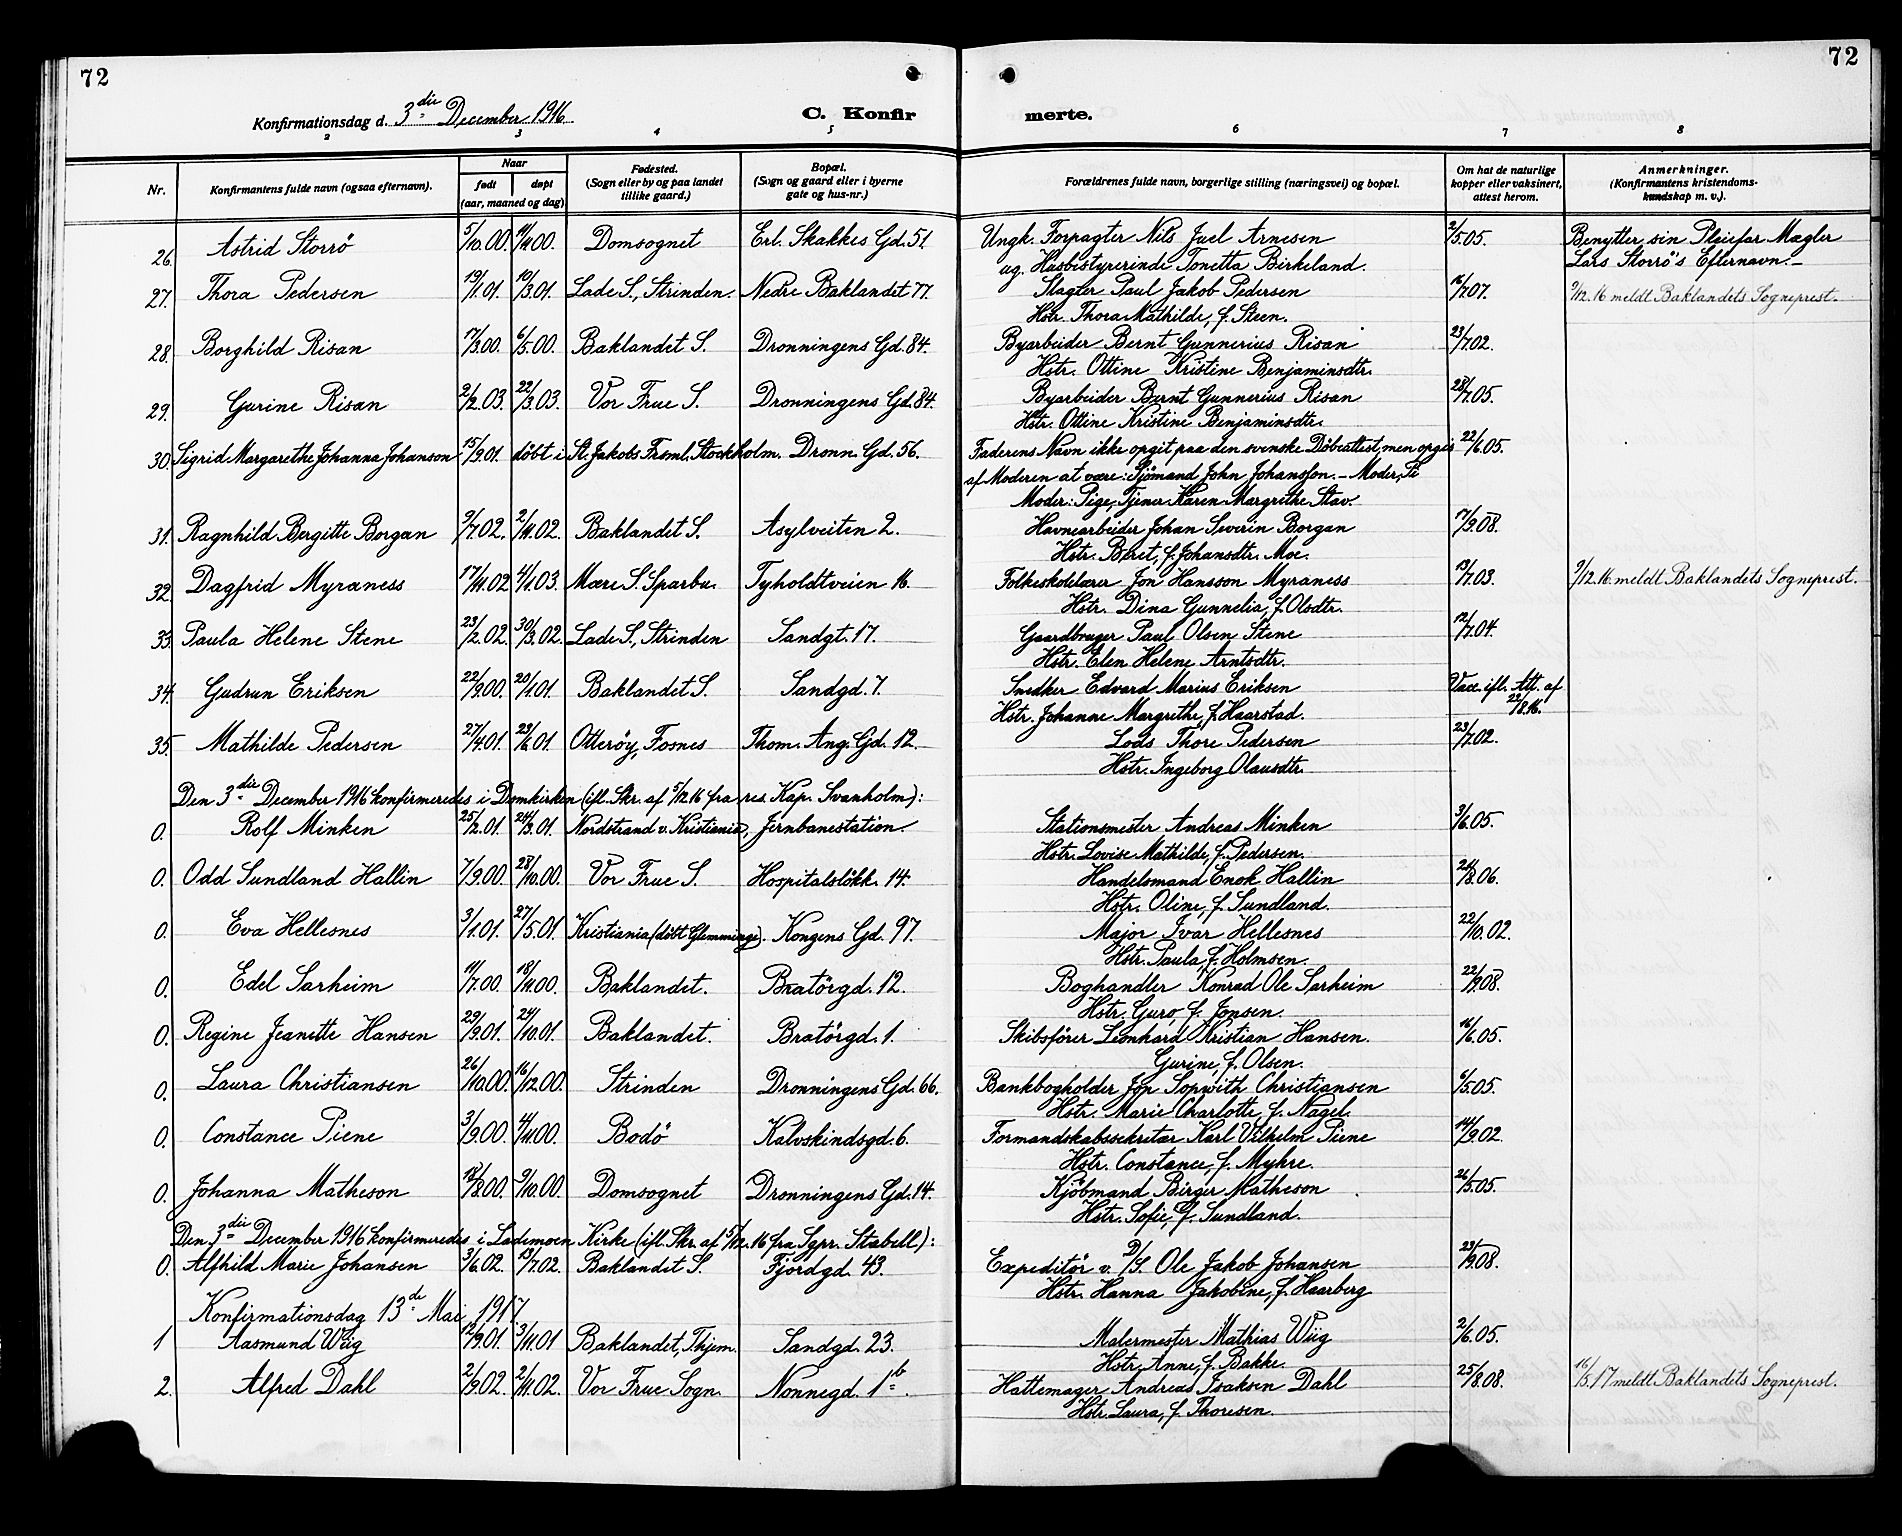 72
72
Konfirmationsdag d. 3die December 1916
C. Konfirmerte.
2 3 4 5 6 7 8
Nr. Konfirmantens fulde navn (ogsaa efternavn). Naar født døpt (aar, maaned og dag) Fødested. (Sogn eller by og paa landet tillike gaard.) Bopæl. (Sogn og gaard eller i byerne gate og hus-nr.) Forældrenes fulde navn, borgerlige stilling (næringsvei) og bopæl. Om hat de naturlige kopper eller vaksinert, attest herom. Anmerkninger. (Konfirmantens kristendomskundskap m. v.).
26. Astrid Storrö 5/10.00. 11/11.00. Domsognet Erl. Skakkes Gd. 51 Ungk. Forpagter Nils Juel Arnesen 2/5.05. Benytter sin Pleiefar Mægler
og. Husbestyrerinde Tonetta Birkeland. Lars Storrö's Efternavn.-
27. Thora Pedersen 19/1.01. 10/3.01. Lade S., Strinden. Nedre Baklandet 77. Slagter Paul Jakob Pedersen 16/7.07. 9/12.16 meldt Baklandets Sogneprest.
Hstr. Thora Mathilde, f. Steen.
28. Borghild Risan 17/3.00. 6/5.00. Baklandet S. Dronningens Gd. 84. Byarbeider Bernt Gunnerius Risan 23/7.02.
Hstr. Ottine Kristine Benjaminsdtr.
29. Gurine Risan 2/2.03. 22/3.03. Vor Frue S. Dronningens Gd. 84. Byarbeider Bernt Gunnerius Risan 28/7.05.
Hstr. Ottine Kristine Benjaminsdtr.
30. Sigrid Margarethe Johanna Johanson 15/9.01. döbt i St. Jakobs Frsml. Stockholm. Dronn. Gd. 56. Faderens Navn ikke opgit paa den svenske Döbeattest, men opgis 22/6.05.
af Moderen at være: Sjömand John Johansson. - Moder, Pi
Moder: Pige, Tjener Karen Margrethe Stav.
31. Ragnhild Bergitte Borgan 9/7.02. 2/11.02. Baklandet S. Asylveiten 2. Havnearbeider Johan Severin Borgan 17/9.08.
Hstr. Beret, f. Johansdtr. Moe.
32. Dagfrid Myraness 17/11.02 4/1.03. Mære S. Sparbu. Tyholdtveien 16. Folkeskolelærer Jon Hansson Myraness 13/7.03. 9/12.16 meldt Baklandets Sogneprest.
Hstr. Dina Gunnelia, f. Olsdtr.
33. Paula Helene Stene 23/2.02. 30/3.02. Lade S., Strinden Sandgt. 17. Gaardbruger Paul Olsen Stene 12/7.04.
Hstr. Elen Helene Arntsdtr.
34. Gudrun Eriksen 22/9.00. 20/1.01. Baklandet S. Sandgd. 7. Snedker Edvard Marius Eriksen Vacc. ifl. Att. af
Hstr. Johanne Margrethe, f. Haarstad. 22/8.16.
35. Mathilde Pedersen 27/4.01. 23/6.01. Otteröy, Fosnes Thom. Ang. Gd. 12. Lods Thore Pedersen 23/7.02.
Hstr. Ingeborg Olausdtr.
Den 3die December 1916 konfirmeredes i Domkirken (ifl. Skr. af 5/12.16 fra res. Kap. Svanholm):
0. Rolf Minken 25/2.01. 24/3.01. Nordstrand v. Kristiania, Jernbanestation. Stationsmester Andreas Minken 3/6.05.
Hstr. Lovise Mathilde, f. Pedersen.
0. Odd Sundland Hallin 7/9.00. 28/10.00. Vor Frue S. Hospitalslökk. 14. Handelsmand Enok Hallin 24/8.06.
Hstr. Oline, f. Sundland.
0. Eva Hellesnes 3/1.01. 27/5.01. Kristiania (döbt Glemminge). Kongens Gd. 97. Major Ivar Hellesnes 22/10.02.
Hstr. Paula, f. Holmsen.
0. Edel Sarheim 11/7.00. 18/11.00. Baklandet. Bratörgd. 12. Boghandler Konrad Ole Sarheim 22/9.08.
Hstr. Guro, f. Jonsen.
0. Regine Jeanette Hansen 29/9.01. 24/10.01. Baklandet. Bratörgd. 1. Skibsförer Leonhard Kristian Hansen. 16/6.05.
Gurine, f. Olsen.
0. Laura Christiansen 26/10.00. 16/12.00. Strinden Dronningens Gd. 66. Bankbogholder Jon Sopwith Christiansen 6/5.05.
Hstr. Marie Charlotte, f. Nagel.
0. Constance Piene 3/9.00. 4/11.00. Bodö Kalvskindsgd. 6. Formandskabssekretær Karl Vilhelm Piene 14/9.02.
Hstr. Constance, f. Myhre.
0. Johanna Matheson 12/8.00. 9/10.00. Domsognet Dronningens Gd. 14. Kjöbmand Birger Matheson 26/5.05.
Hstr. Sofie, f. Sundland.
Den 3die December 1916 konfirmeredes i Lademoen Kirke (ifl. Skr. af 5/12.16 fra Sgpr. Stabell):
0. Alfhild Marie Johansen 3/6.02. 13/7.02. Baklandet S. Fjordgd. 43. Expeditör v. D/S. Ole Jakob Johansen 23/9.08.
Hstr. Hanna Jakobine, f. Haarberg
Konfirmationsdag 13de Mai 1917
1 Aasmund Wiig 12/9.01. 3/11.01 Baklandet, Thjem. Sandgd. 23. Malermester Mathias Wiig 2/6.05.
Hstr. Anne, f. Bakke.
2. Alfred Dahl 2/9.02. 2/11.02. Vor Frue Sogn. Nonnegd. 1b. Hattemager Andreas Isaksen Dahl 25/8.08. 16/5.17 meldt Baklandets Sogneprest.
Hstr. Laura, f. Thoresen.